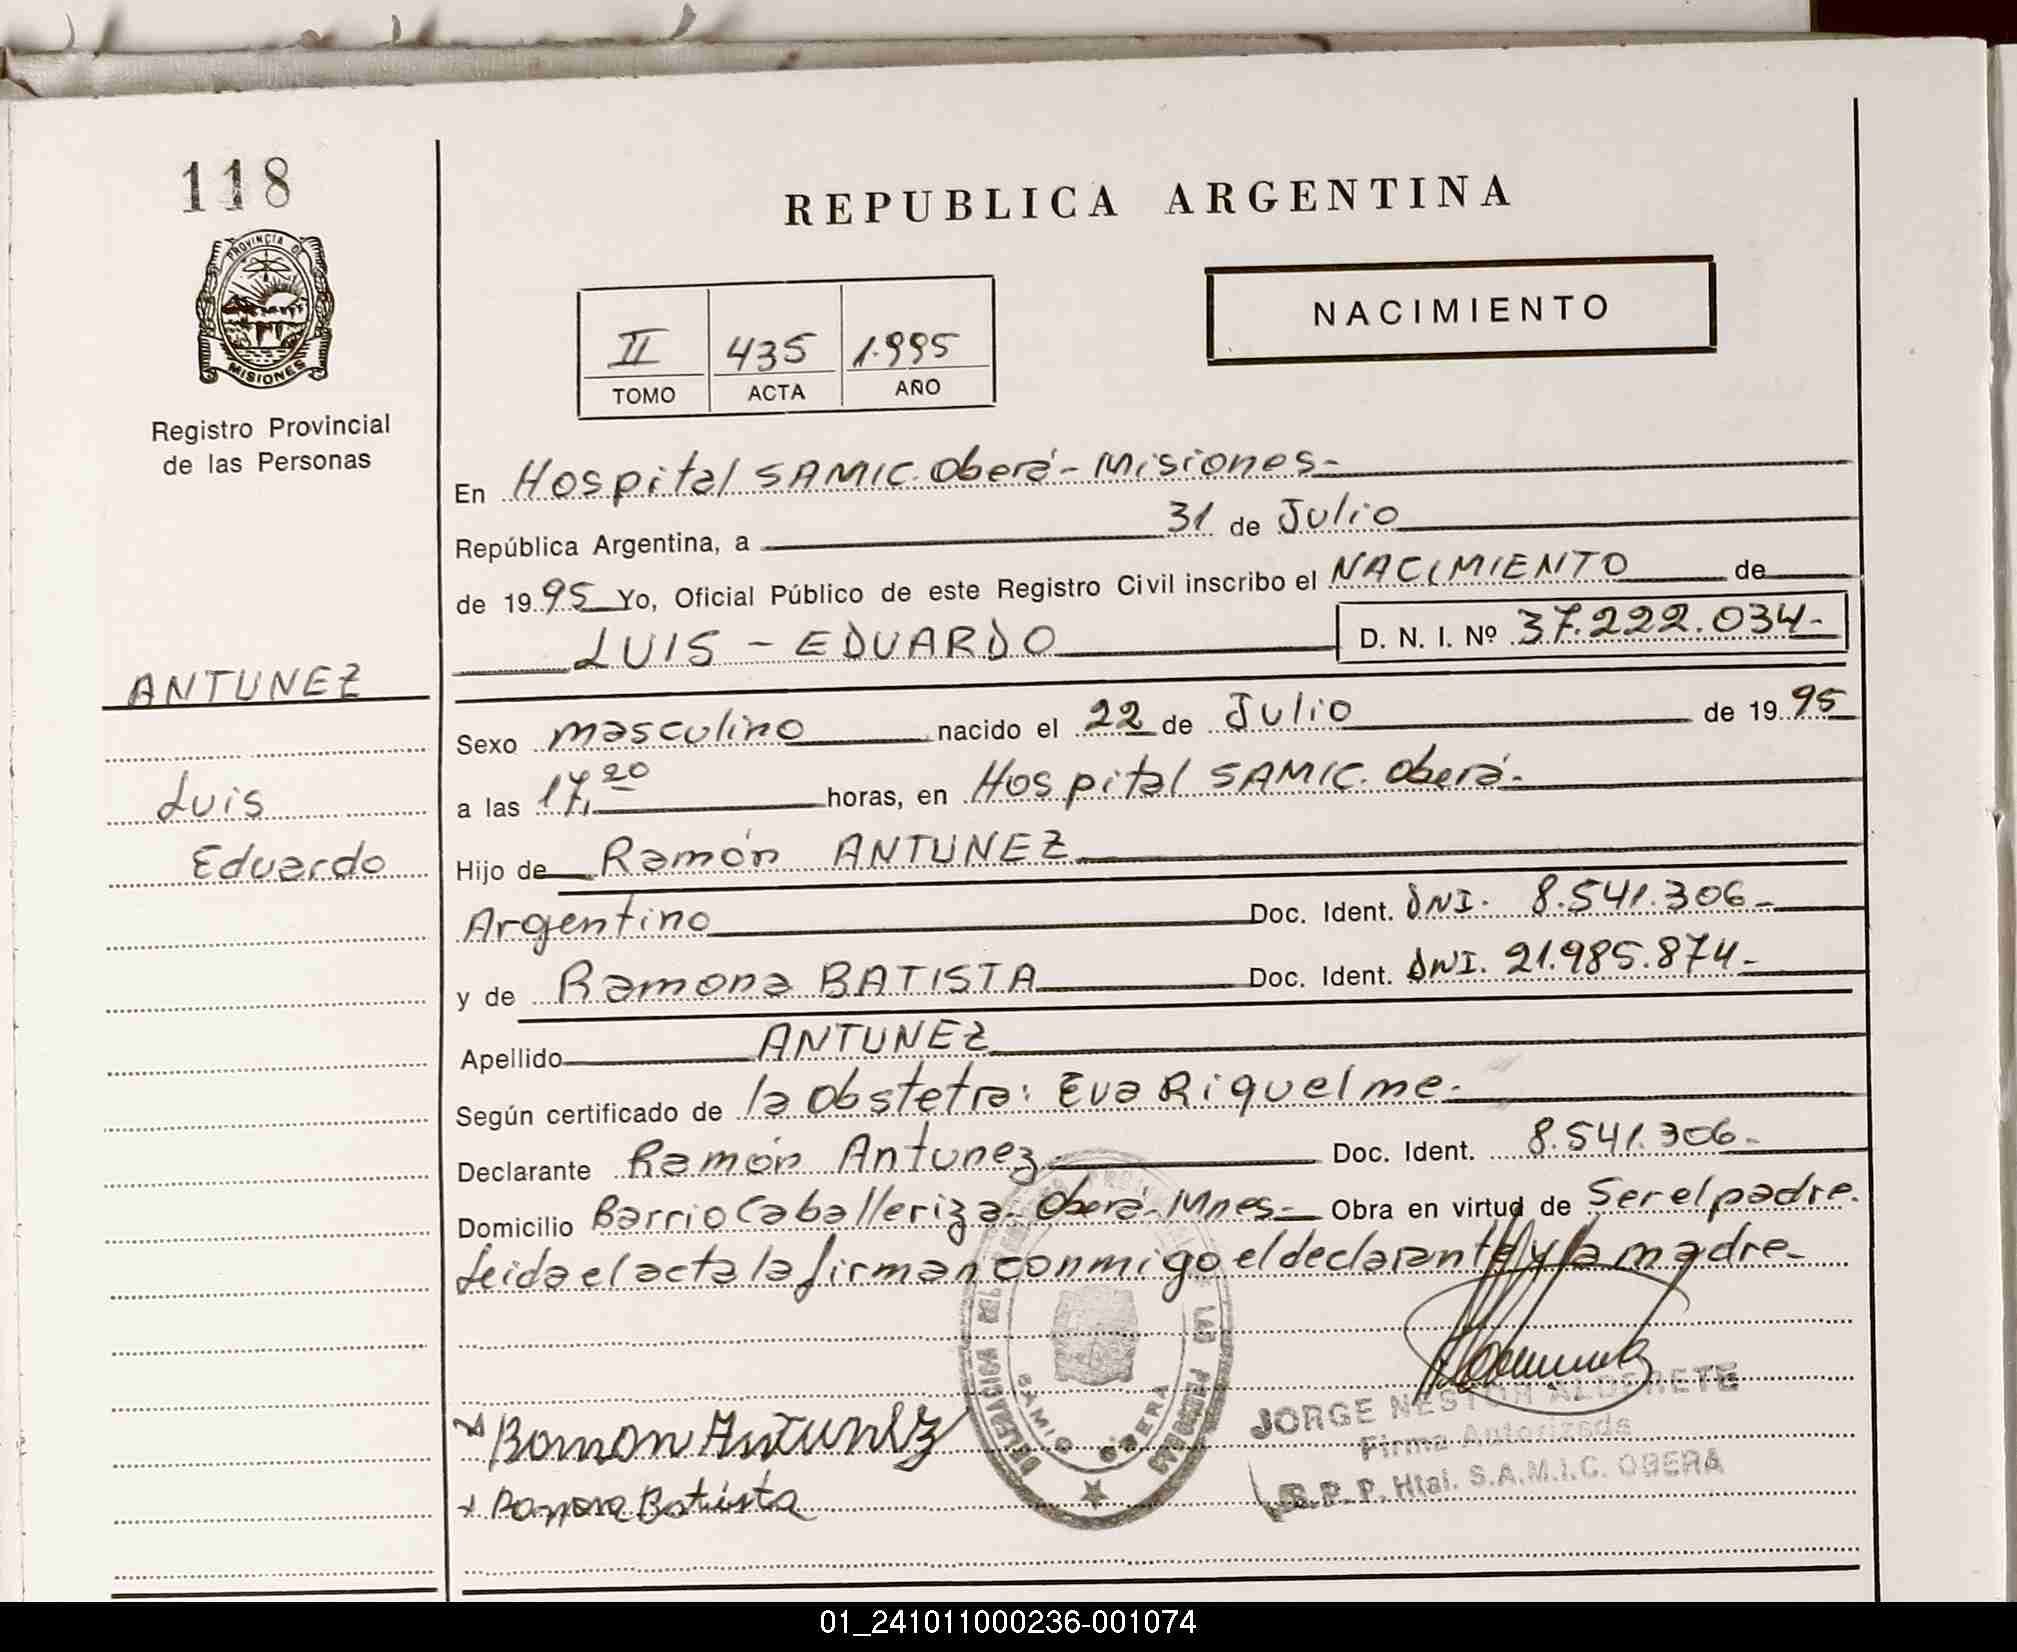 118
PROVINCIA DE
MISIONES
Registro Provincial
de las Personas
ANTUNEZ
Luis
Eduardo
REPUBLICA ARGENTINA
II 435 1.995
TOMO ACTA AÑO
NACIMIENTO
En Hospital SAMIC. Oberá - Misiones-
República Argentina, a 31 de Julio
de 19 95 Yo, Oficial Público de este Registro Civil inscribo el NACIMIENTO de
LUIS - EDUARDO D. N. I. Nº 37.222.034-
Sexo masculino nacido el 22 de Julio de 19 95
a las 17,20 horas, en Hospital SAMIC. Oberá-
Hijo de Ramón ANTUNEZ
Argentino Doc. Ident. DNI. 8.541.306-
y de Ramona BATISTA Doc. Ident. DNI. 21.985.874-
Apellido ANTUNEZ
Según certificado de la Obstetra: Eva Riquelme-
Declarante Ramón Antunez Doc. Ident. 8.541.306-
Domicilio Barrio Caballeriza- Oberá- Mnes- Obra en virtud de Ser el padre.
Leida el acta la firman conmigo el declarante y la madre-
Ramon Antunez
Ramona Batista
SAMIC OBERA
JORGE NESTOR ALDERETE
Firma Autorizada
R.P.P. Htal. S.A.M.I.C. OBERA
01_241011000236-001074